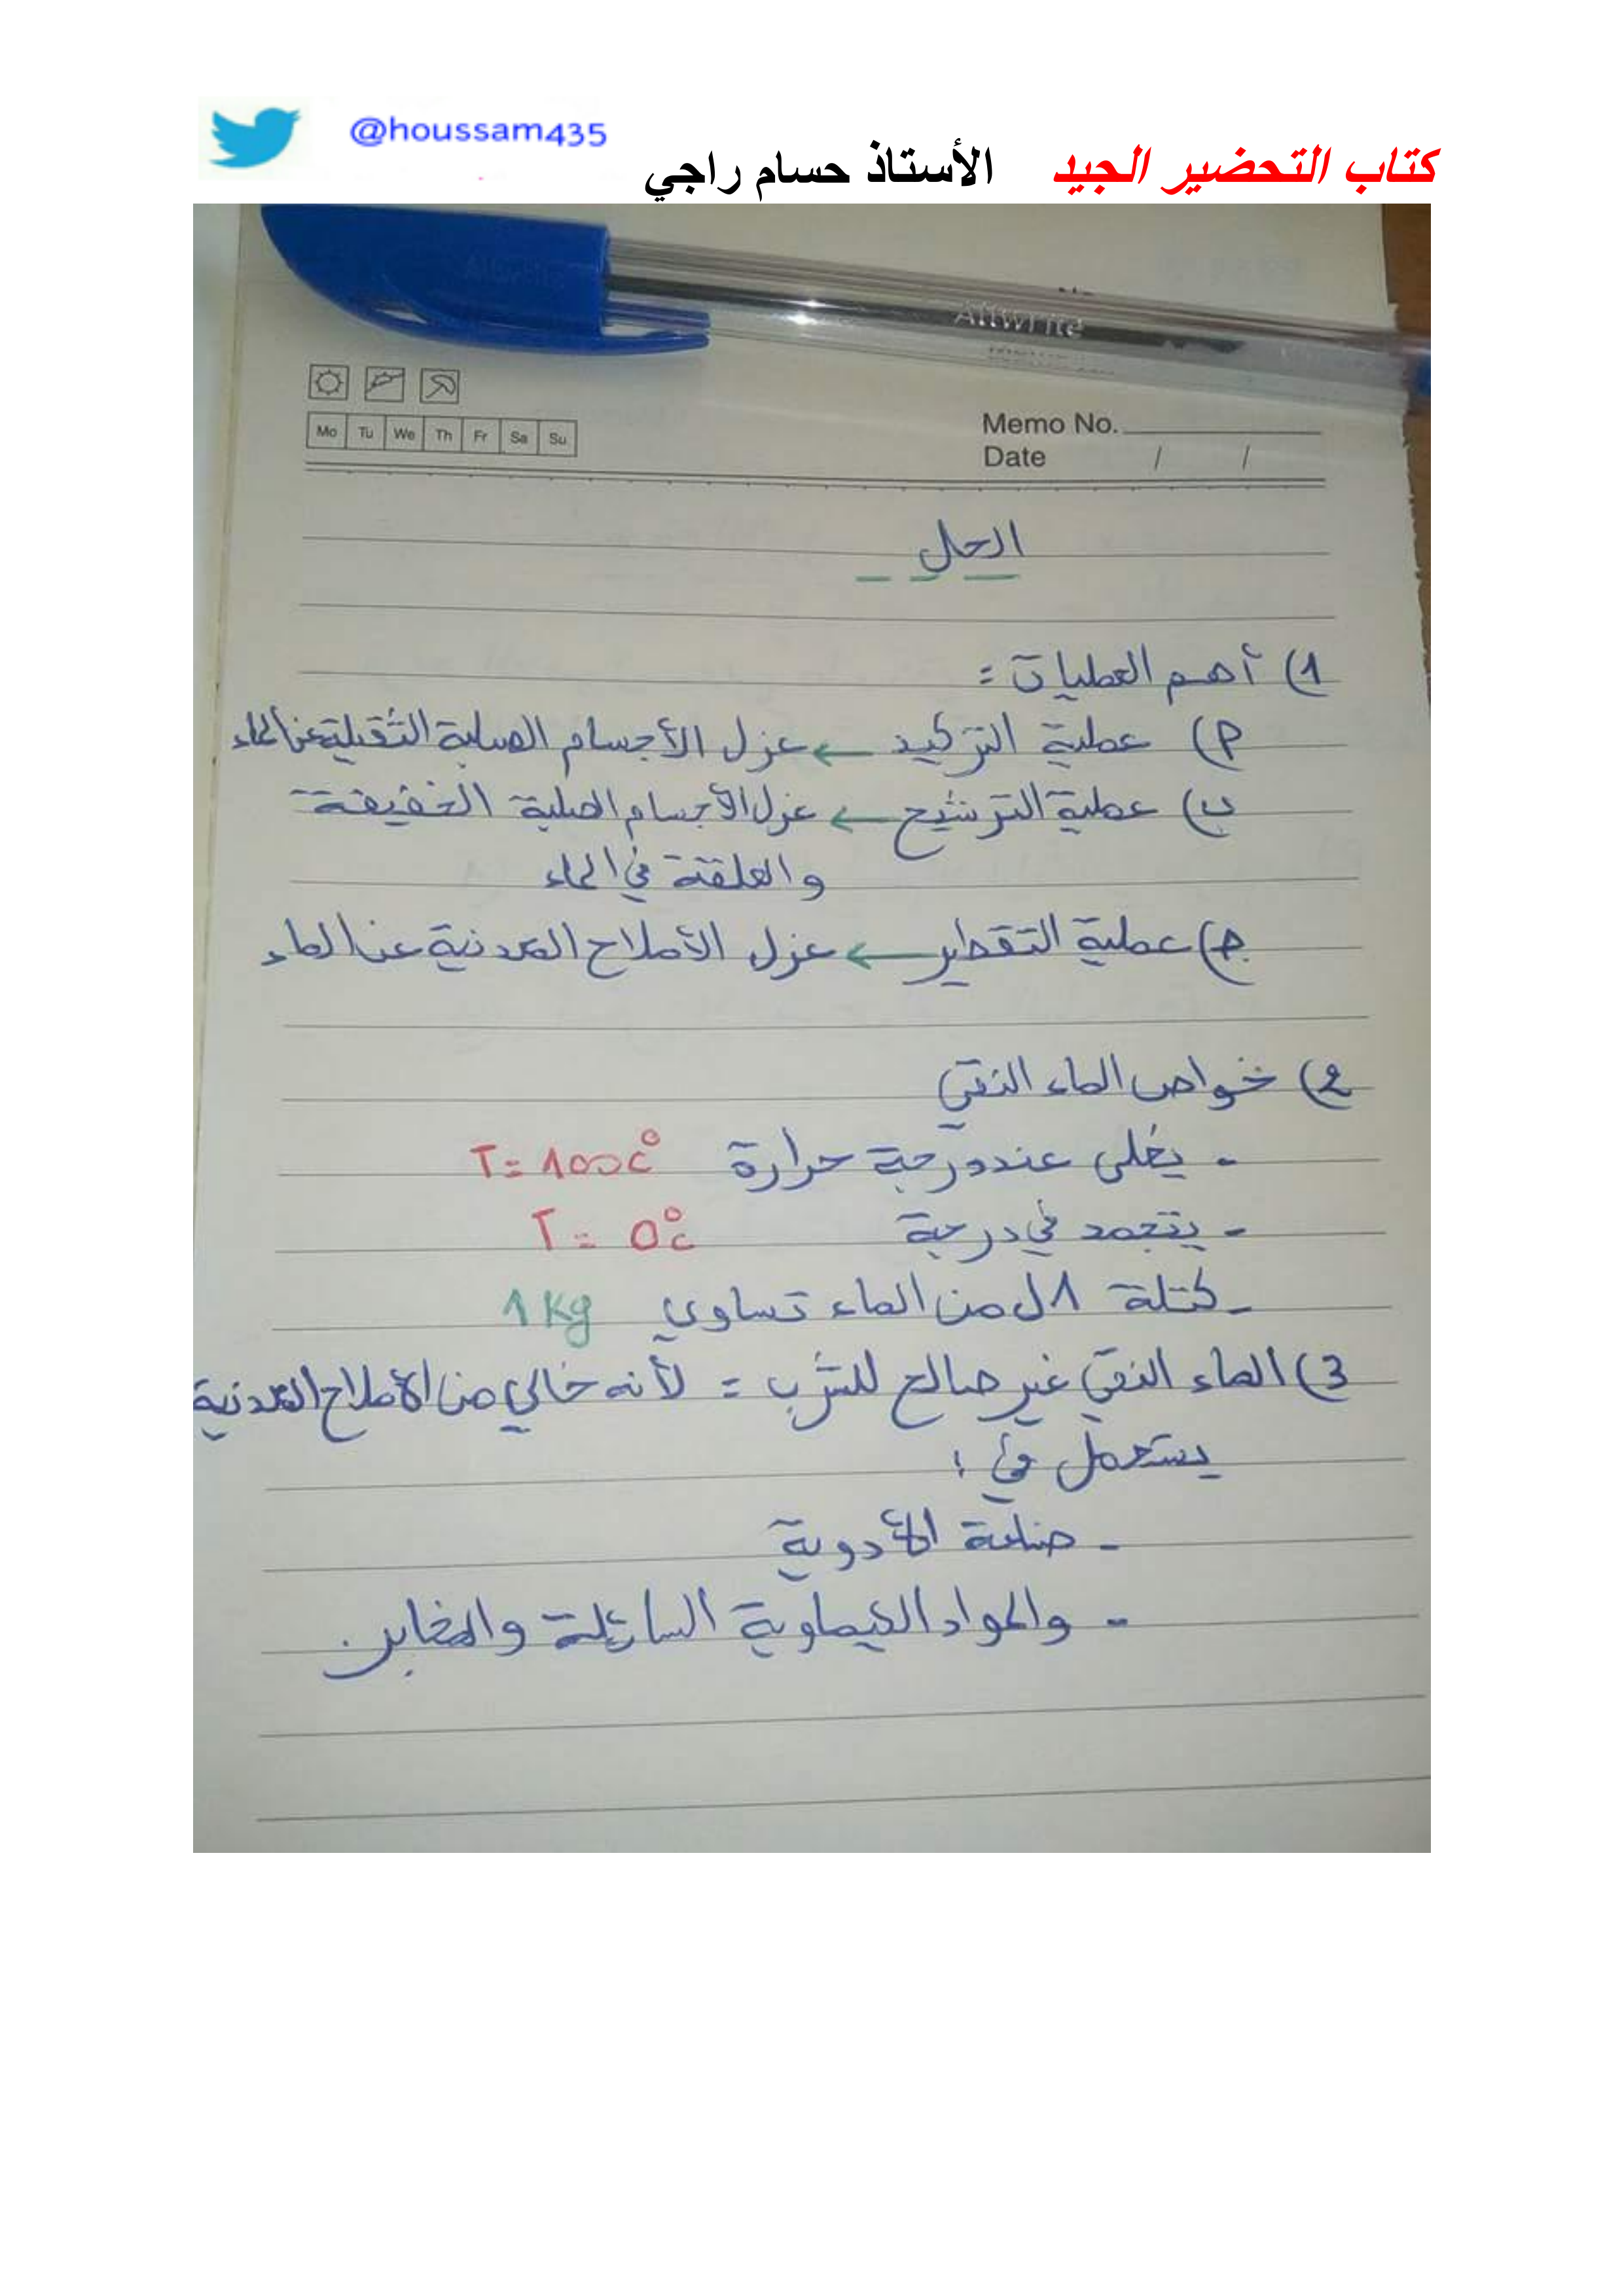 @houssam435
كتاب التحضير الجيد الأستاذ حسام راجي
Allwrite
Mo Tu We Th Fr Sa Su
Memo No.
Date / /
الحل
1) أهم العمليات :
أ) عملية التركيد ← عزل الأجسام الصلبة الثقيلة عن الماء
ب) عملية الترشيح ← عزل الأجسام الصلبة الخفيفة
والعلقة في الماء
ج) عملية التقطير ← عزل الأملاح المعدنية عن الماء
2) خواص الماء النقي
- يغلى عند درجة حرارة T=100c°
- يتجمد في درجة T= 0°c
- كتلة 1ل من الماء تساوي 1Kg
3) الماء النقي غير صالح للشرب = لأنه خالي من الأملاح المعدنية
يستعمل في :
- صناعة الأدوية
- والمواد الكيماوية السائلة والمخابر.